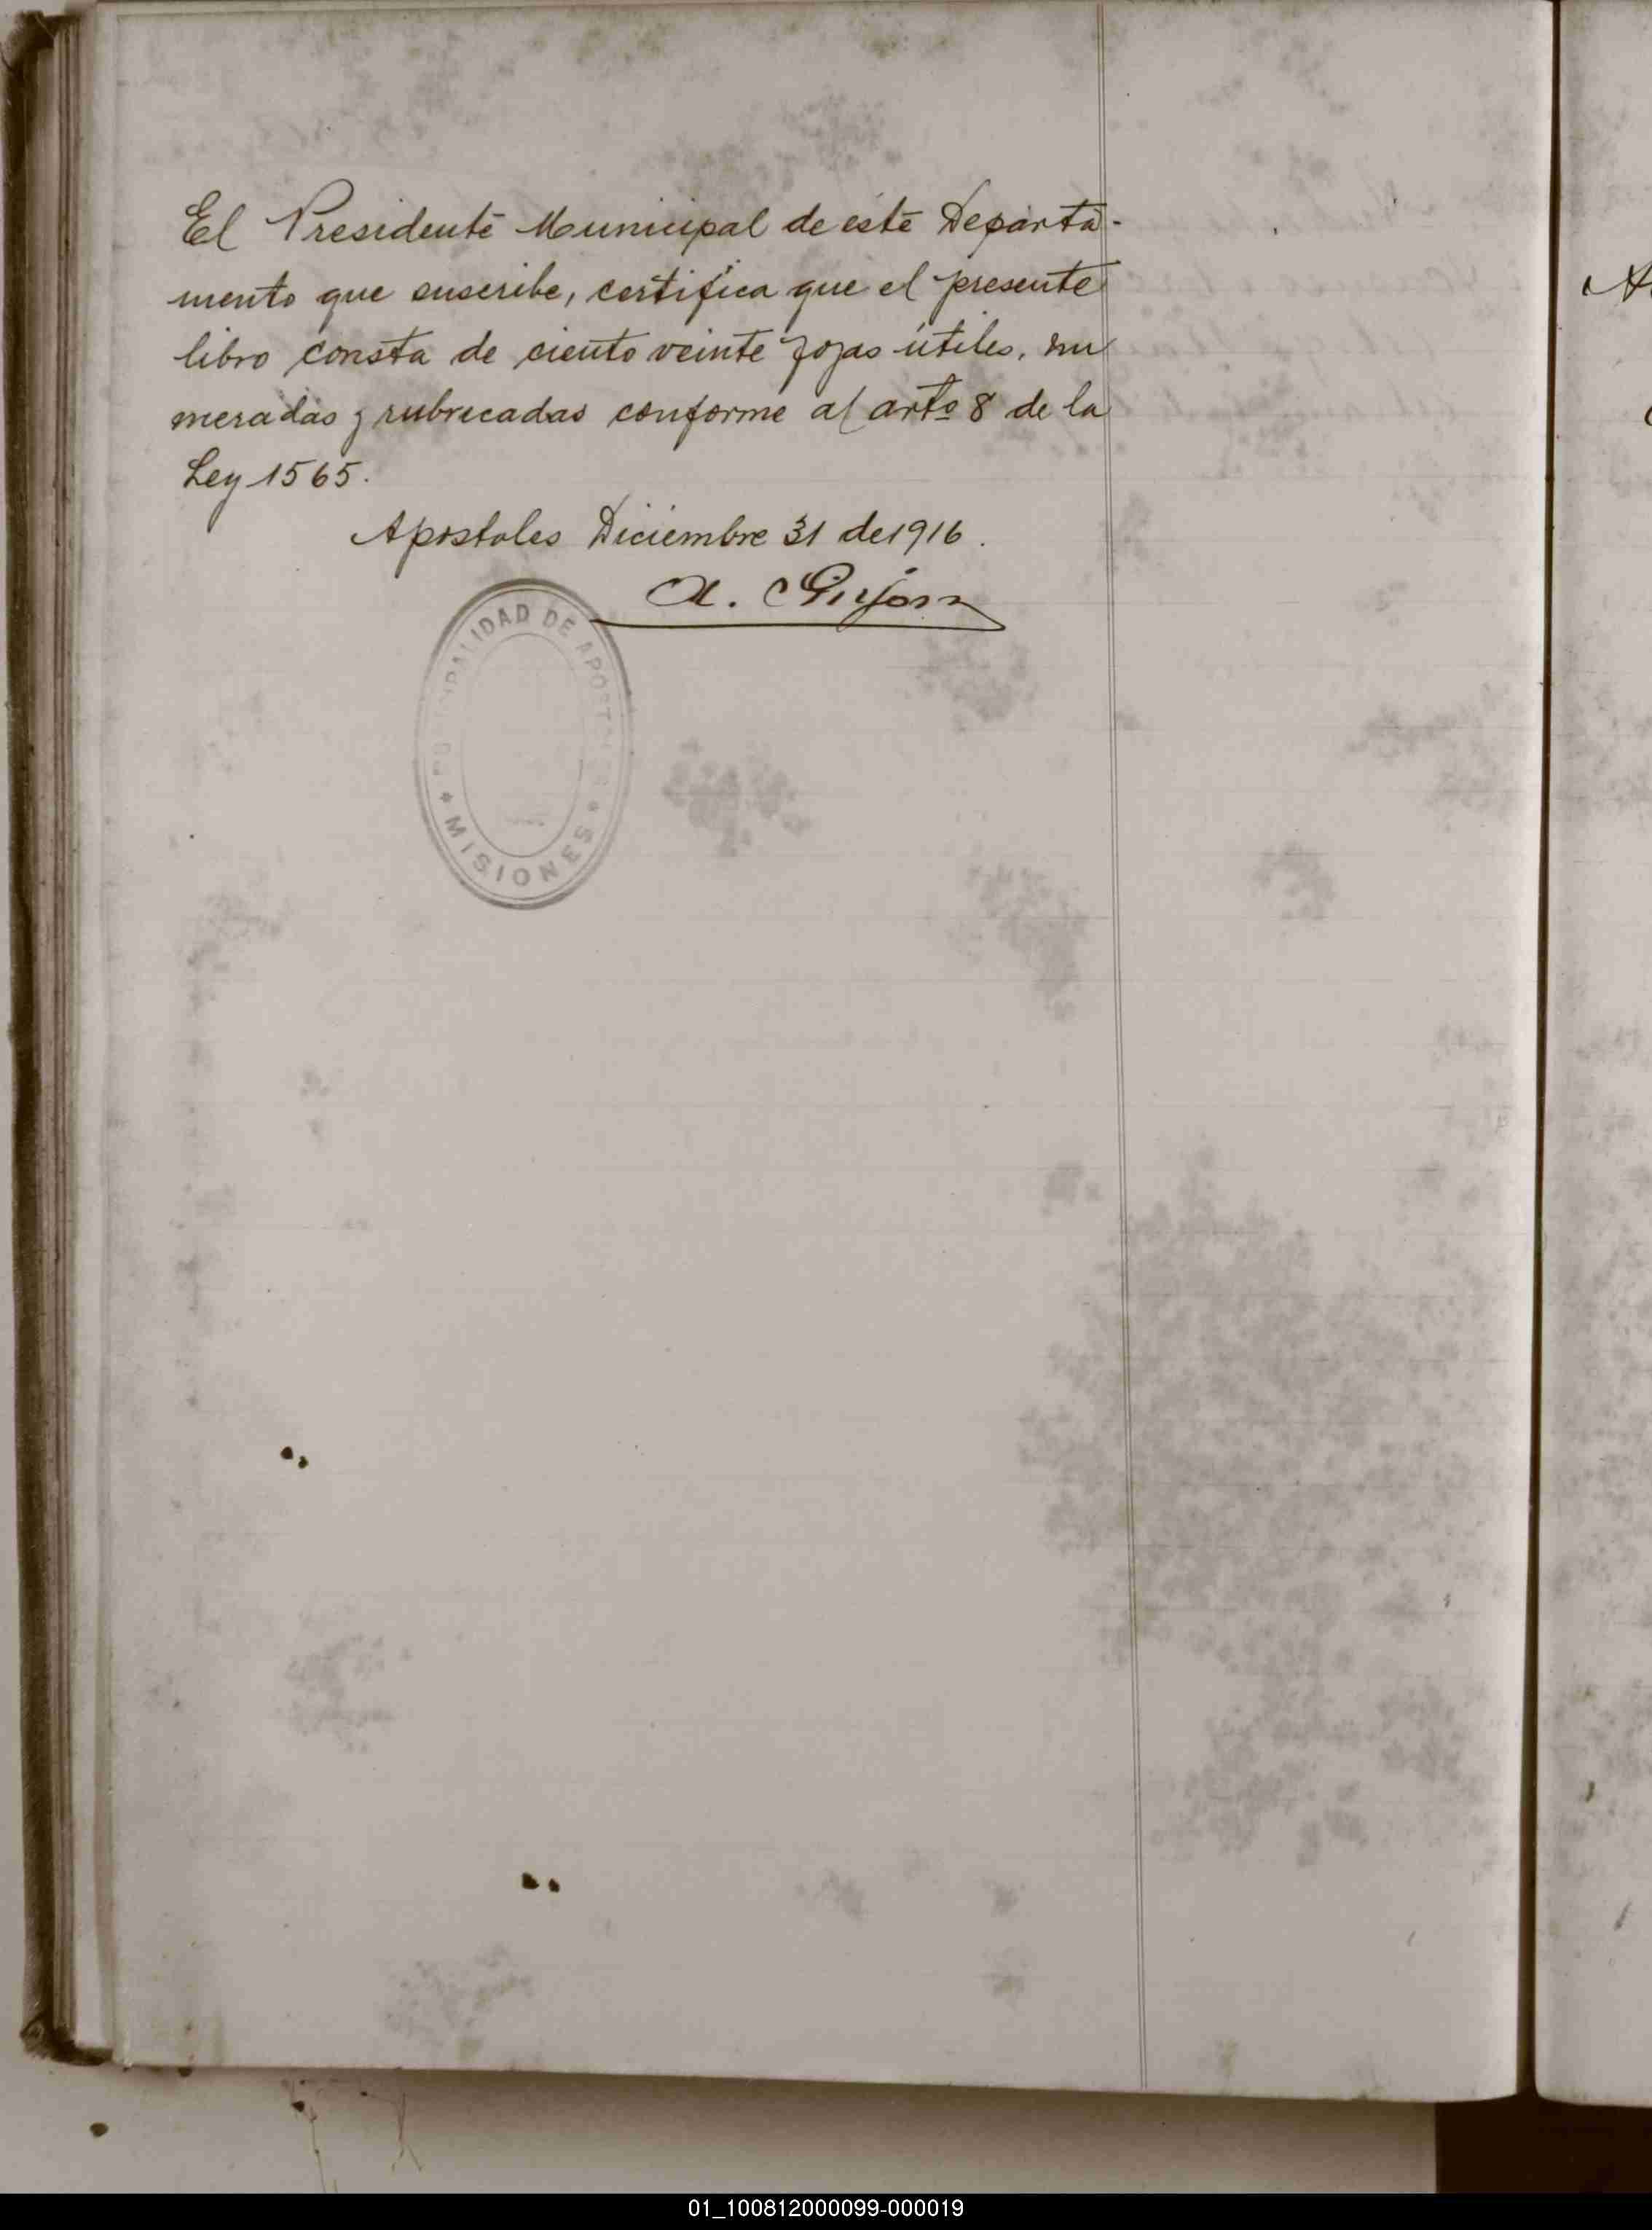 El Presidente Municipal de este Departa-
mento que suscribe, certifica que el presente
libro consta de ciento veinte fojas útiles, nu
meradas y rubricadas conforme al artº 8 de la
Ley 1565.
Apostoles Diciembre 31 de 1916.
A.
DE APOSTOLES
MISIONES
01_100812000099-000019